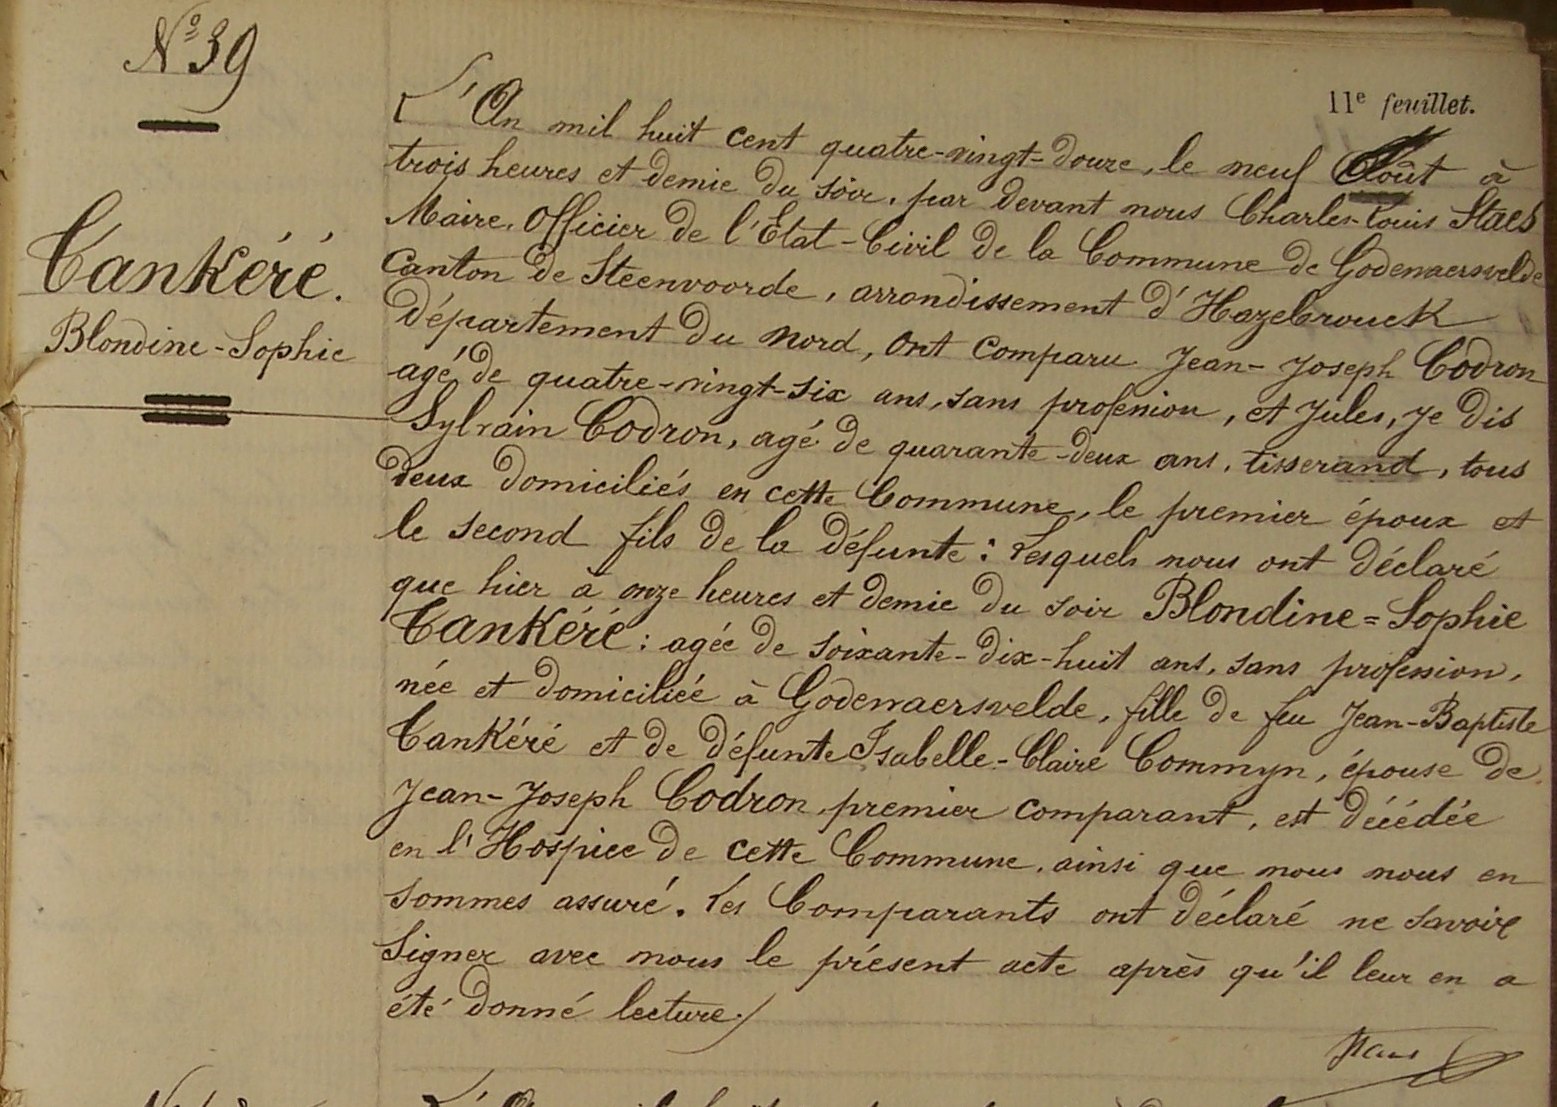 N° 39
11e feuillet.
L'An mil huit cent quatre-vingt-douze, le neuf Août à
trois heures et demie du soir, par devant nous Charles-Louis Staes
Maire, Officier de l'Etat-Civil de la Commune de Godewaersvelde
Canton de Steenvoorde, arrondissement d'Hazebrouck
Département du Nord, ont comparu Jean-Joseph Codron
agé de quatre-vingt-six ans, sans profession, et Jules, je dis
Sylvain Codron, agé de quarante-deux ans, tisserand, tous
deux domiciliés en cette Commune, le premier époux et
le second fils de la défunte: Lesquels nous ont déclaré
que hier à onze heures et demie du soir Blondine=Sophie
Cankéré: agée de soixante-dix-huit ans, sans profession,
née et domiciliée à Godewaersvelde, fille de feu Jean-Baptiste
Cankéré et de défunte Isabelle-Claire Commyn, épouse de
Jean-Joseph Codron, premier comparant, est décédée
en l'Hospice de cette Commune, ainsi que nous nous en
sommes assuré. Les Comparants ont déclaré ne savoir
signer avec nous le présent acte après qu'il leur en a
été donné lecture./
Cankéré.
Blondine-Sophie
Staes